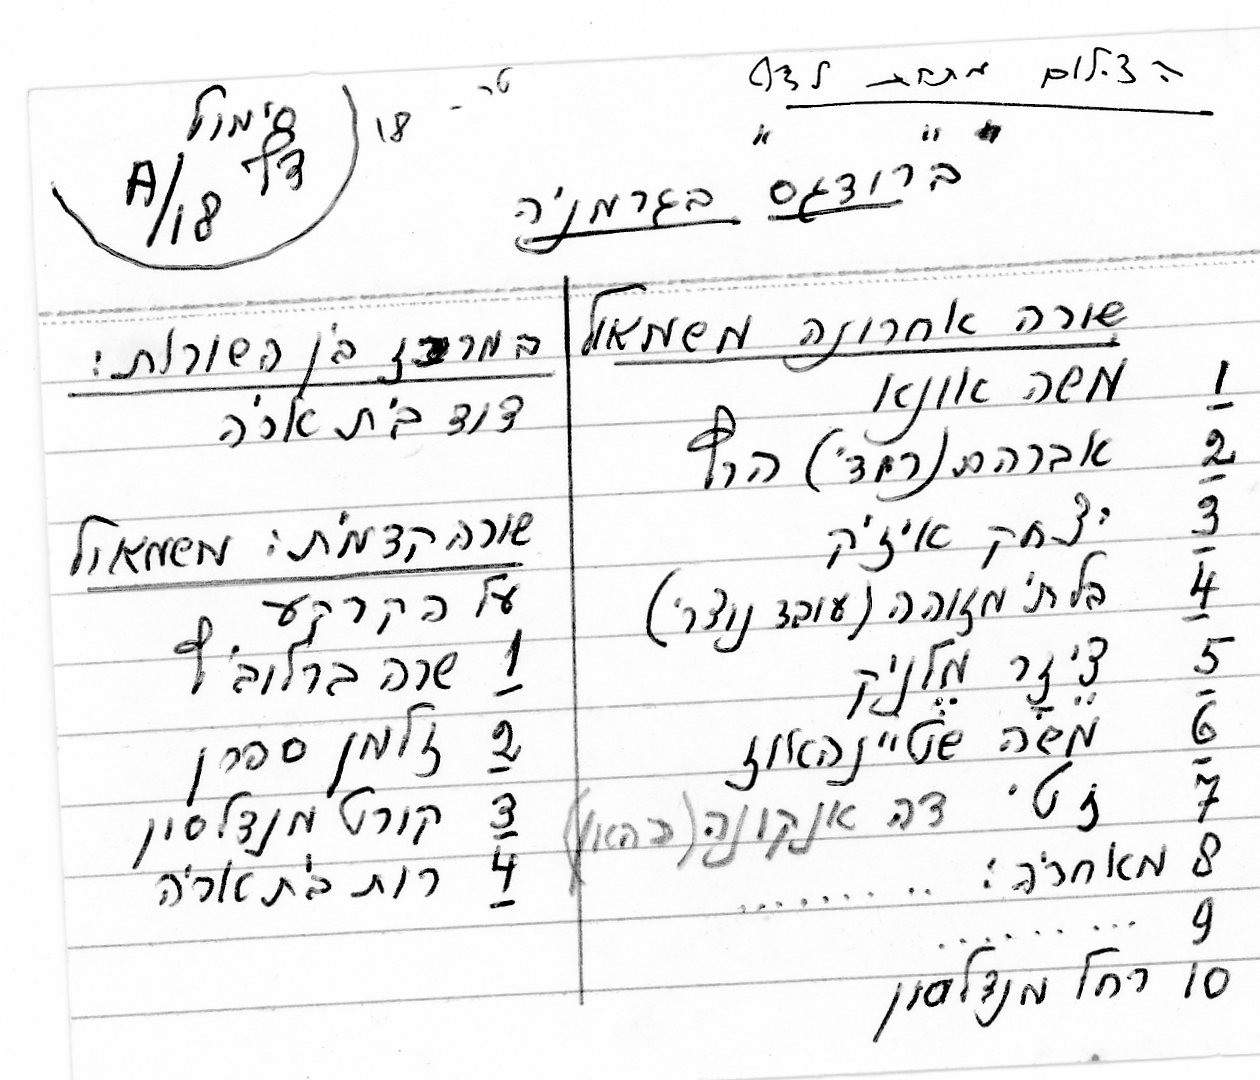 הצילום מתחת לדף
18
סימול
דף
A/18
"ברודגס" בגרמניה
שורה אחרונה משמאול
1 משה אונא
2 אברהם (רודי) הרף
3 יצחק איזיק
4 בלתי מזוהה (עובד נוצרי)
5 צ'יזר מלניק
6 משה שטיינהאוז
7 זטי דה אנקונה (כהאן)
8 מאחריה: ........
9 ........
10 רחל מנדלסון
במרכז בין השורות:
דוד בית אריה
שורה קדמית: משמאול
על הקרקע
1 שרה ברלוביץ
2 זלמן ספרן
3 קורט מנדלסון
4 רות בית אריה